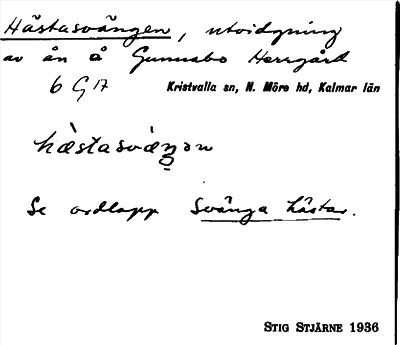 Hästasvängen, utvidgning
av ån å Gunnabo Herrgård
6 G 17 Kristvalla sn, N. Möre hd, Kalmar län
hæ̀stasvæ̀ŋən
Se ordlapp Svänga hästar.
STIG STJÄRNE 1936